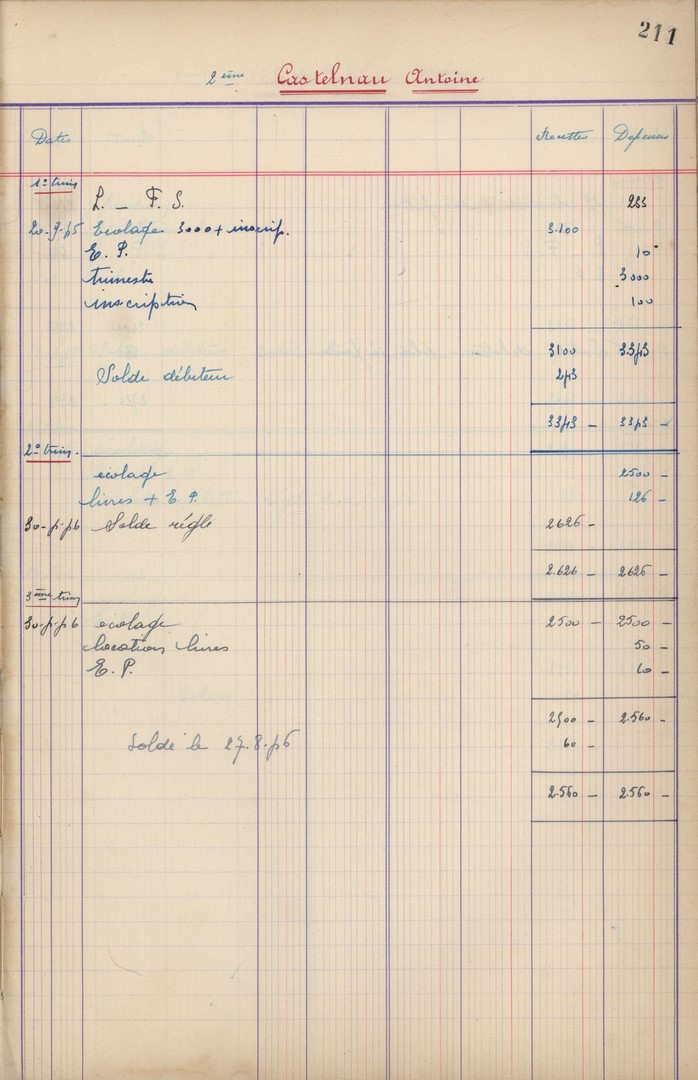 211
2ème Castelnau Antoine
Dates Recettes Dépenses
1º trim
L. _ F. S. 233
20-9-45 Ecolage 3000 + inscrip. 3.100
E. P. 10
trimestre 3000
inscription 100
3100 3343
Solde débiteur 243
3343 - 3343 -
2º trim.
écolage 2500 -
livres + E. P. 126 -
30-4-46 Solde réglé 2626 -
2.626 - 2626 -
3ème trim
30-4-46 écolage 2500 - 2500 -
location livres 50 -
E. P. 10 -
2500 - 2.560 -
Soldé le 27.8.46 60 -
2.560 - 2.560 -